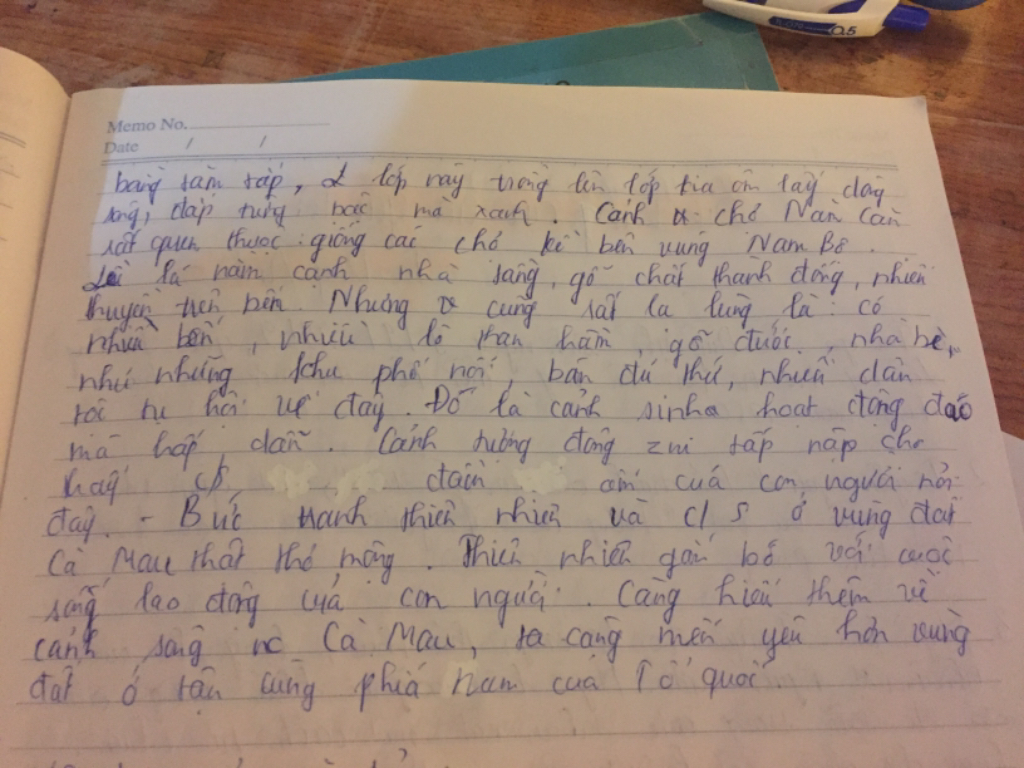 0.5
Memo No.
Date / /
bằng tăm tắp, lớp này trồng lên lớp kia ôm lấy dòng
sông, đắp từng bậc mà xanh. Cảnh chợ Năm Căn
rất quen thuộc: giống các chợ kề bên vùng Nam Bộ.
là nằm cạnh nhà sông, gỗ chất thành đống, nhiều
thuyền trên bến. Nhưng cũng rất lạ lùng là: có
nhiều bến, nhiều lò than hầm, gỗ đước, nhà bè,
như những khu phố nổi, bán đủ thứ, nhiều dân
tộc tụ hội về đây. Đó là cảnh sinh hoạt động đáo
mà hấp dẫn. Cảnh tượng đông zui tấp nập cho
thấy c/s đầm ấm của con người nơi
đây. - Bức tranh thiên nhiên và c/s ở vùng đất
Cà Mau thật thơ mộng. Thiên nhiên gắn bó với cuộc
sống lao động của con người. Càng hiểu thêm về
cảnh sông nc Cà Mau, ta càng mến yêu hơn vùng
đất ở tận cùng phía Nam của Tổ quốc.